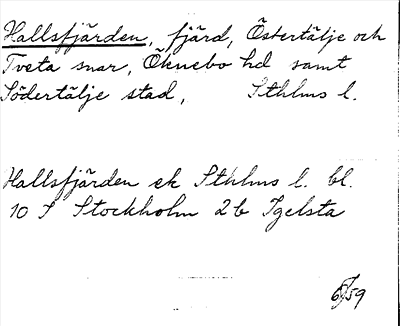 Hallsfjärden, fjärd, Östertälje och
Tveta snar, Öknebo hd samt
Södertälje stad, Sthlms l.
Hallsfjärden ek Sthlms l. bl.
10 S Stockholm 2b Igelsta
59